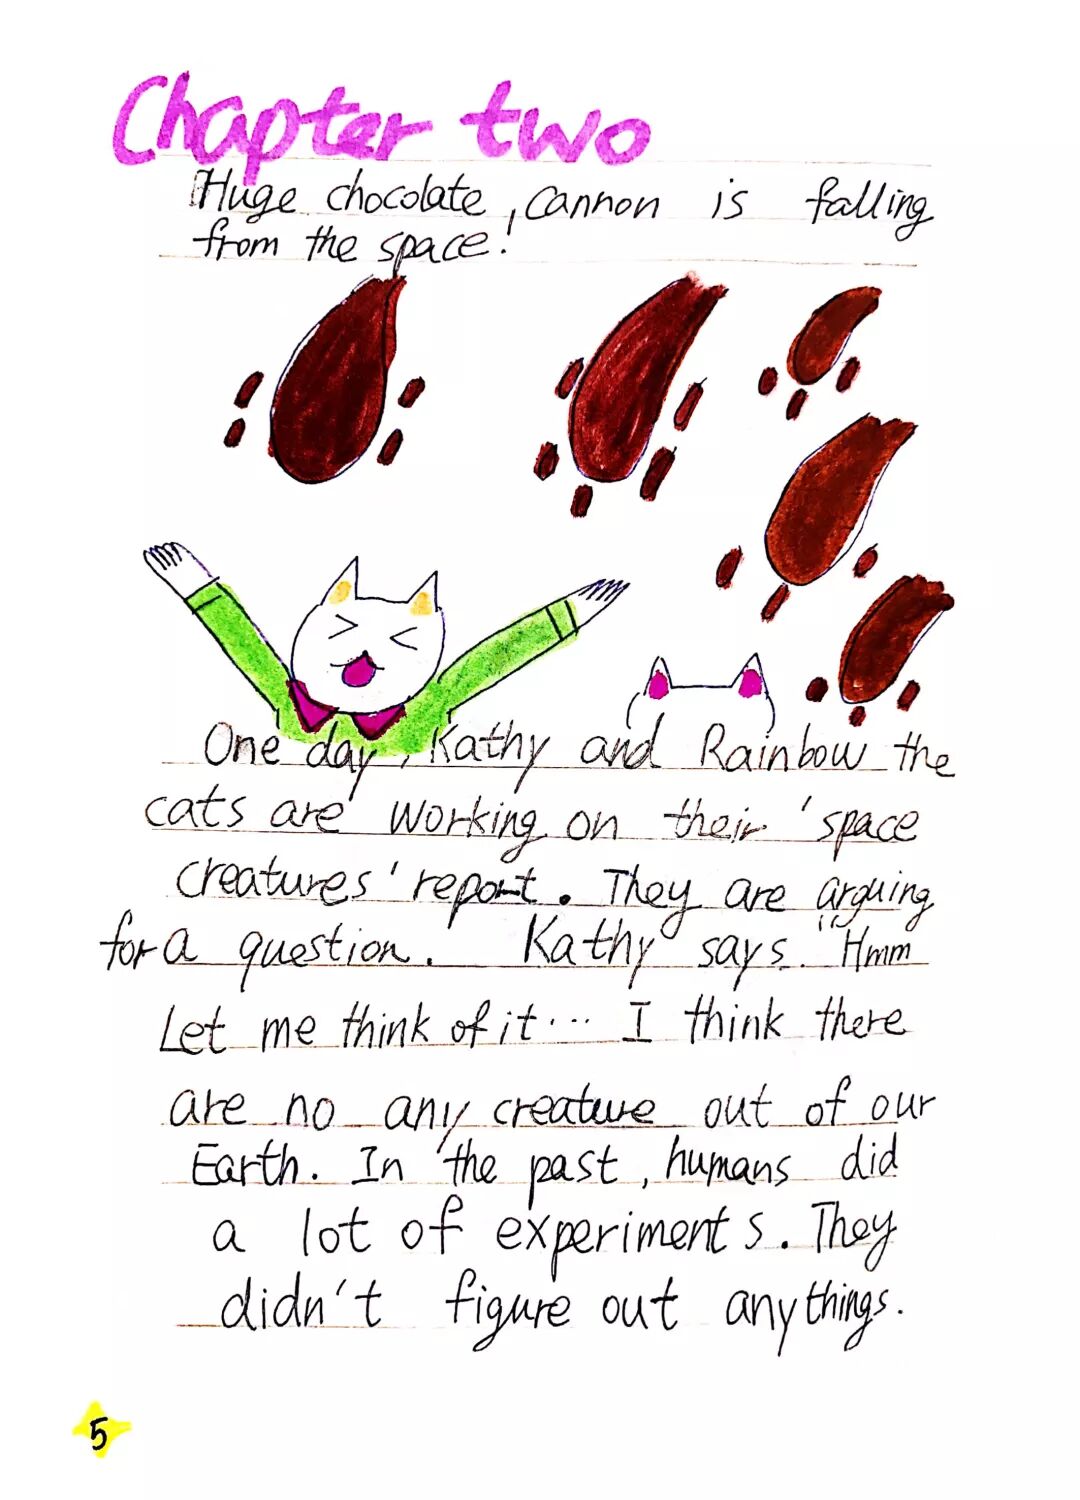 Chapter two
Huge chocolate, cannon is falling
from the space!
One day, Kathy and Rainbow the
cats are working on their 'space
creatures' report. They are arguing
for a question. Kathy says. "Hmm
Let me think of it... I think there
are no any creature out of our
Earth. In the past, humans did
a lot of experiments. They
didn't figure out anythings.
5